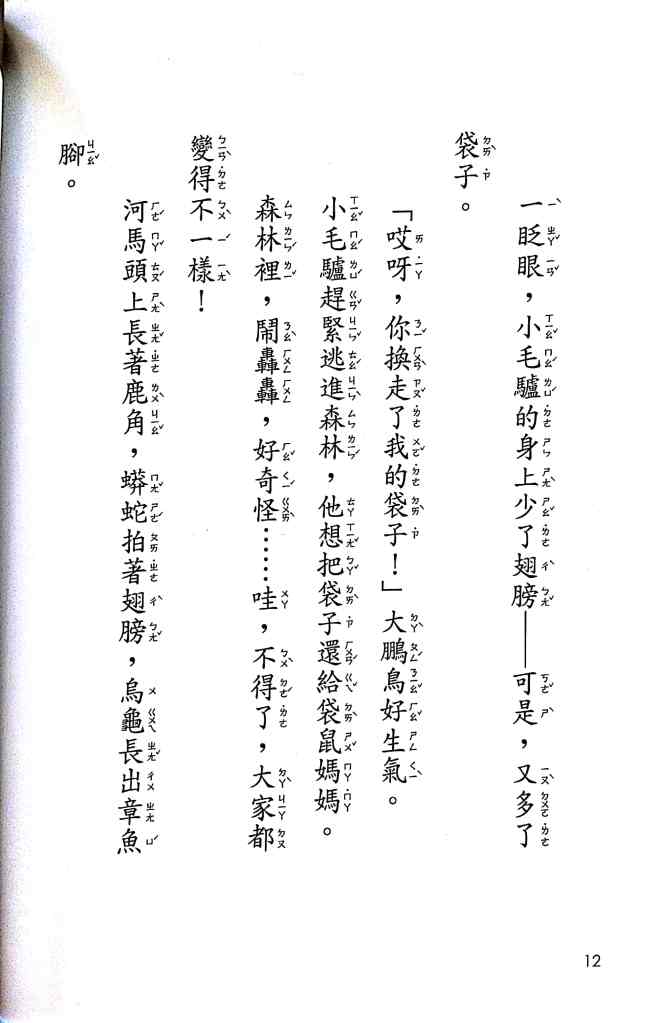 一眨眼，小毛驢的身上少了翅膀——可是，又多了
袋子。
「哎呀，你換走了我的袋子！」大鵬鳥好生氣。
小毛驢趕緊逃進森林，他想把袋子還給袋鼠媽媽。
森林裡，鬧轟轟，好奇怪……哇，不得了，大家都
變得不一樣！
河馬頭上長著鹿角，蟒蛇拍著翅膀，烏龜長出章魚
腳。
12